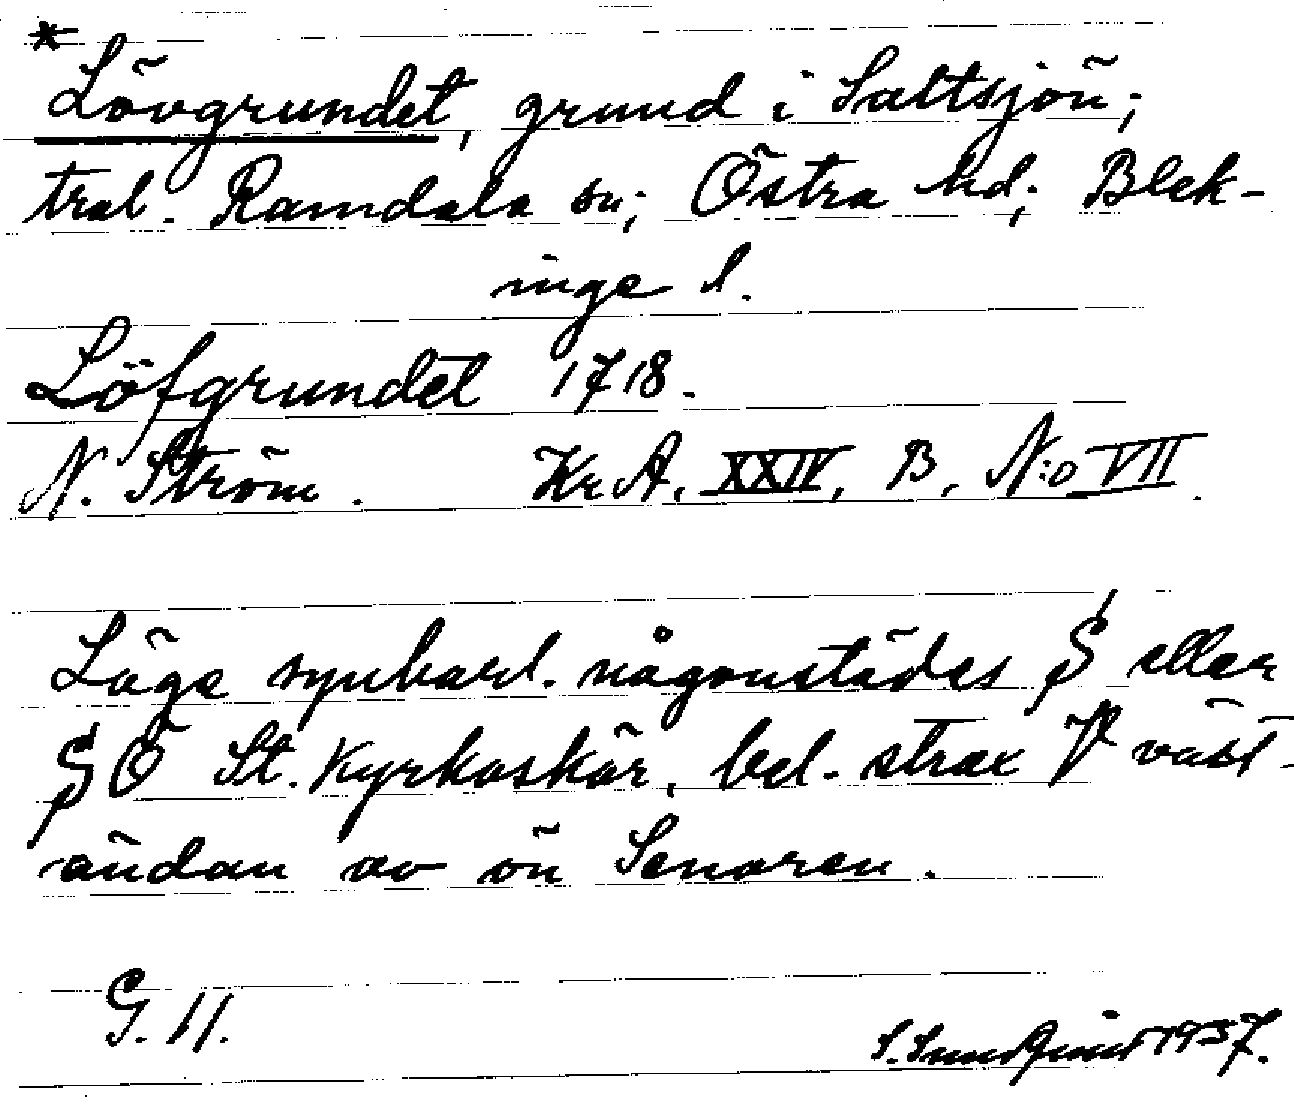 * Lövgrundet, grund i Saltsjön;
tral. Ramdala sn; Östra hd; Blek-
inge l.
Löfgrundet 1718.
N. Ström. Kr A. XXIV, B, N:o VII.
Läge synbarl. någonstädes S eller
SO St. Kyrkoskär, bel. strax V väst-
ändan av ön Senoren.
G. 11.
S. 1937.